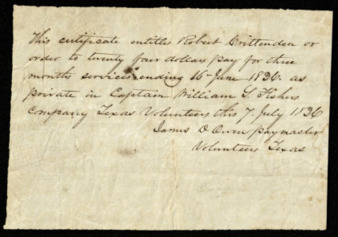 This certificate entitles Robert Crittenden or
order to twenty four dollars pay for three
months services ending 16 June 1836 as
private in Captain William S. Fishers
Company Texas Volunteers this 7. July 1836
James D Owen paymaster
Volunteers Texas